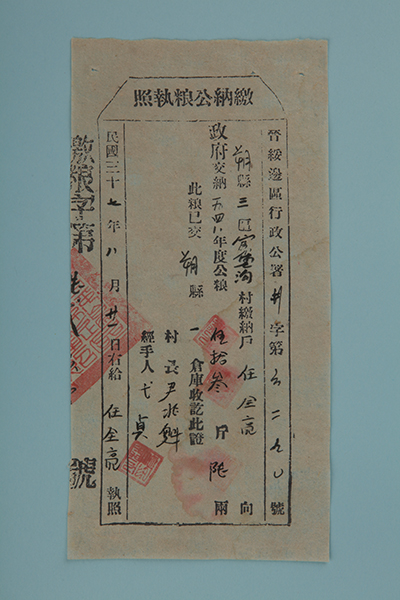 繳納公粮執照
晉綏邊區行政公署 字第 二九〇號
朔縣三區 村繳納戶任全亮向
政府交納一九四八年度公粮 拾叁斤陸兩
此粮已交朔縣一倉庫收訖此證
村長尹兆魁
經手人弋貞
民國三十七年八月廿一日右給任全亮執照
繳粮字第 號